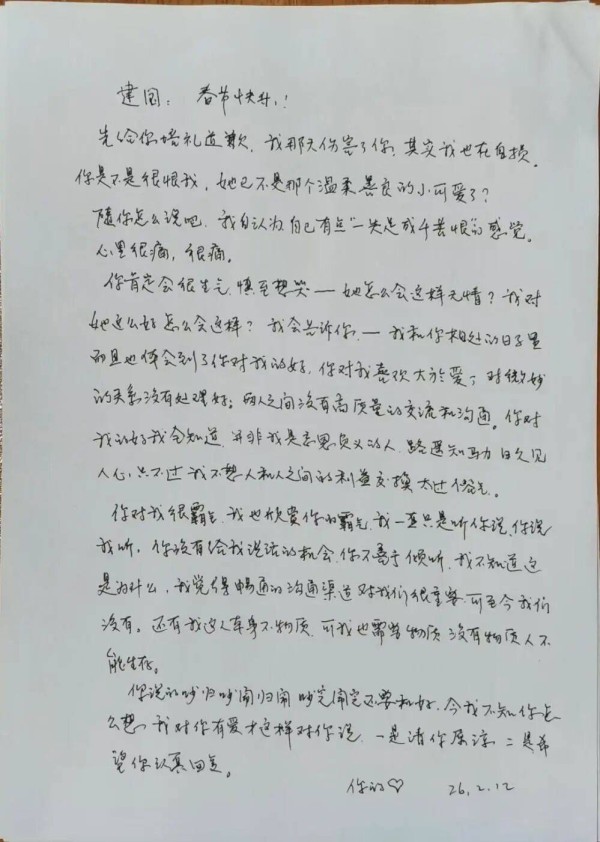 建国：春节快升！
先给你婚礼道歉，我那天伤害了你，其实我也在自损。
你是不是很恨我，她已不是那个温柔善良的小可爱了？
随你怎么说吧，我自认为自己有点"一失足成千苦恨"的感觉。
心里很痛，很痛。
你肯定会很生气，慎至想哭—她怎么会这样无情？我对
她这么好怎么会这样？我会告诉你，—我和你相处的日子里
而且也体会到了你对我的好，你对我喜欢大于爱，对微妙
的关系没有处理好；两人之间没有高质量的交流和沟通。你对
我的好我全知道，并非我是忘恩负义的人，路遥知马力日久见
人心，只不过我不想人和人之间的利益交换太过俗气。
你对我很霸气，我也欣赏你的霸气，我一直只是听你说，你说
我听，你没有给我说话的机会，你不善于倾听，我不知道这
是为什么，我觉得畅通的沟通渠道对我们很重要，可至今我们
没有。还有我这人本身不物质，可我也需要物质，没有物质人不
能生存。
你说的吵归吵闹归闹，吵完闹完还要和好，今我不知你怎
么想，我对你有爱才这样对你说，一是请你原谅，二是希
望你认真回复。
你的♡ 26.2.12